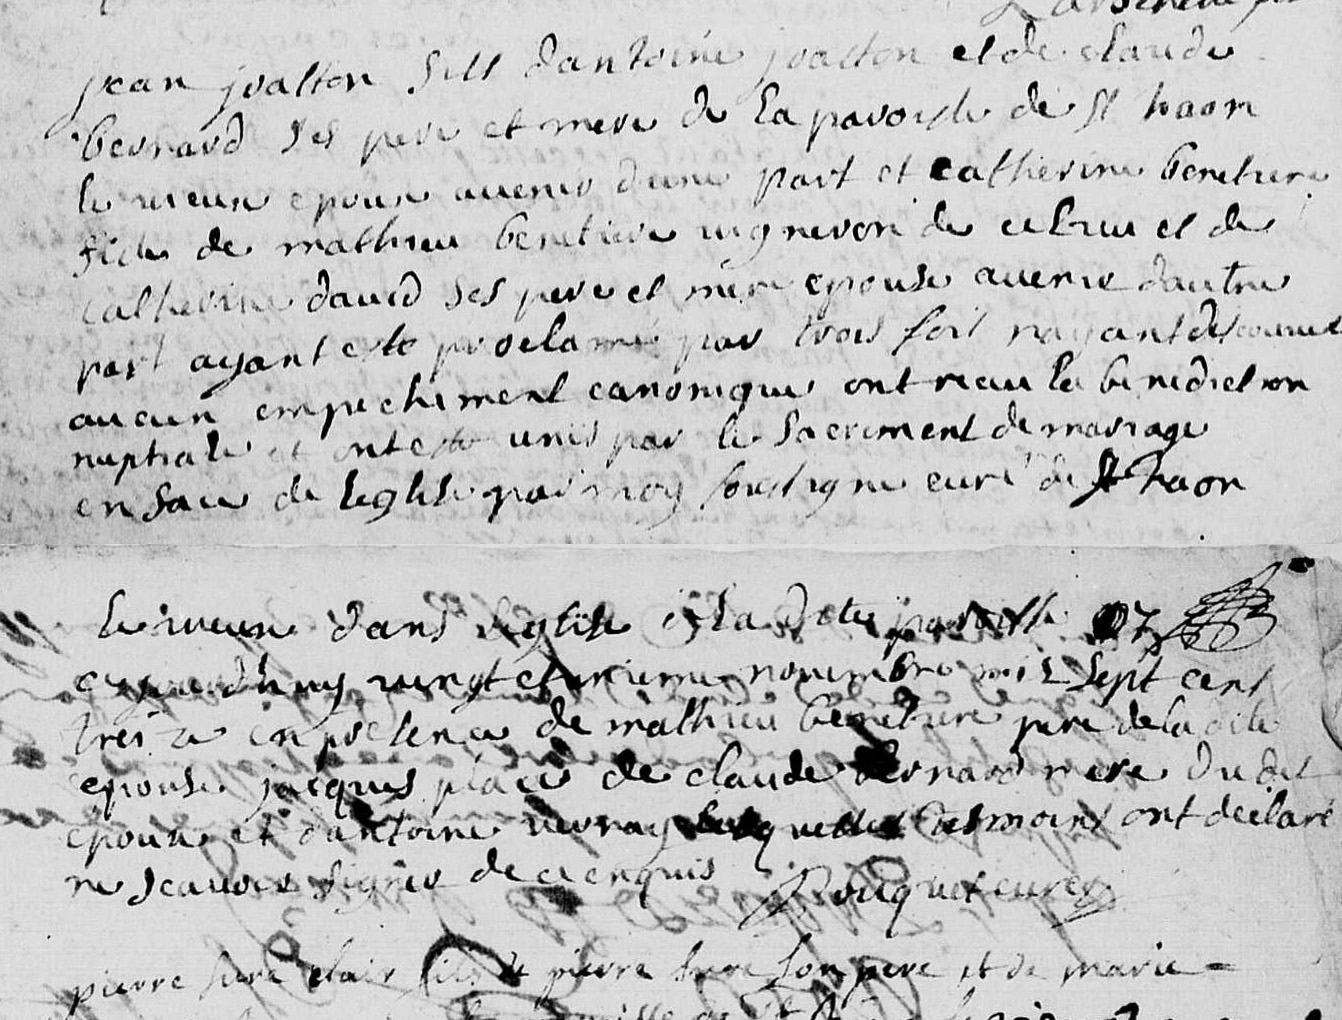 jean joalton fils dantoine joalton et de claude
bernard ses pere et mere de la paroisse de st haon
le vieux epoux avenir dune part et catherine benetiere
fille de mathieu benetiere vigneron de ce lieu et de
catherine david ses pere et mere epouse avenir dautre
part ayant este proclamé par trois fois nayant descouvert
aucun empechement canonique ont receu la benediction
nuptiale et ont este unis par le sacrement de mariage
en face de leglise par moy soussigne curé de st haon
le vieux dans leglise de la dite paroisse
ce jourdhuy vingt et unieme novembre mil sept cent
treize en presence de mathieu benetiere pere de la dite
epouse jacques place de claude bernard mere du dit
epoux et dantoine vernay lesquelles tesmoins ont declaré
ne scavoir signer de ce enquis Rouquet curé
pierre fils de pierre son pere et de marie